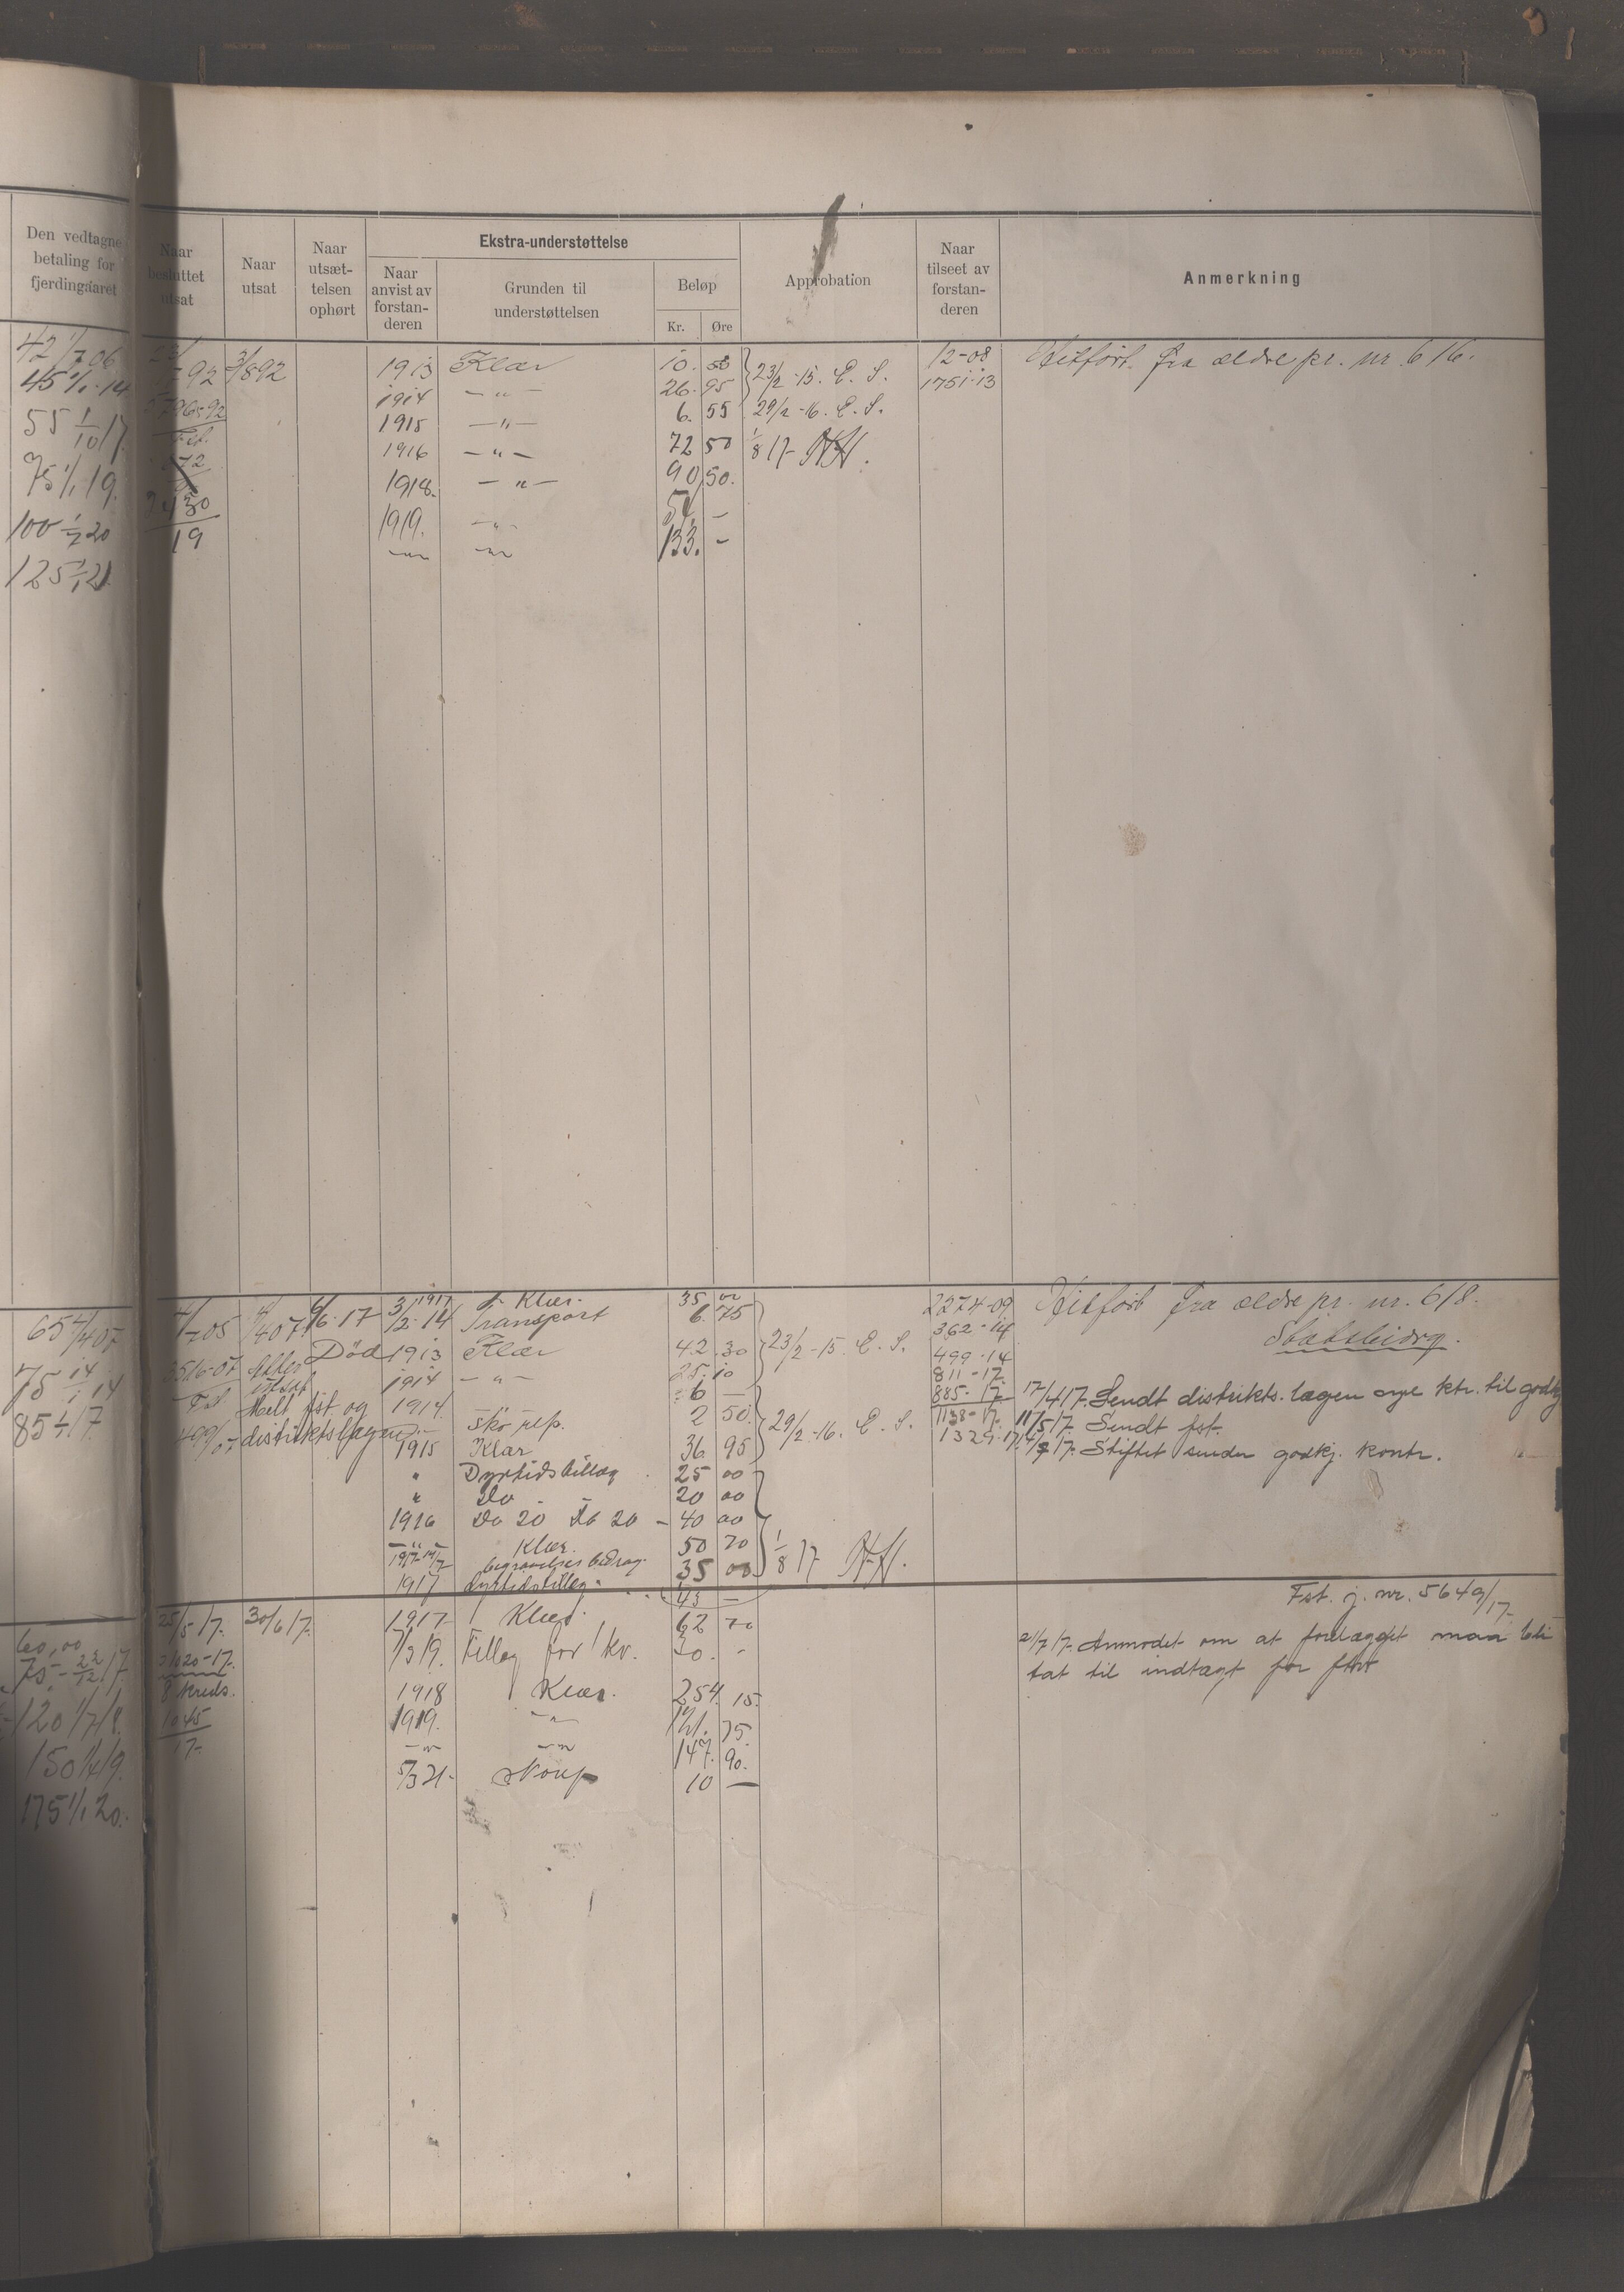 Den vedtagne
betaling for
fjerdingaaret
Naar
besluttet
utsat
Naar
utsat
Naar
utsæt-
telsen
ophørt
Ekstra-understøttelse
Naar
anvist av
forstan-
deren
Grunden til
understøttelsen
Beløp
Kr. Øre
Approbation
Naar
tilseet av
forstan-
deren
Anmerkning
42 1/7 06
45 1/1-14
55 1/10 17
75 1/1 19.
100 1/7 20
125 1/1 21.
92
3/8 92
2430
19
1913 Klær 10. 50 23/2-15. E. S. 12-08 Hitført fra ældre pr. nr. 616.
1914 —"— 26. 95 1751-13
1915 —"— 6. 55 29/2-16. E. S.
1916 —"— 72 50 1/8 17
1918. —"— 90 50.
1919. —"— 54 —
—"— —"— 133. -
65 1/4 07
75 1/1 14
85 1/4 17
05
1/4 07
6/6-17
Død
3516-07
utsat
Melt fst og
distriktslægen
499/07
1917 Klær. 35 00
3/2-14 Transport 6. 75 2274-09 Hitført fra ældre pr. nr. 618.
362-14 Statsbidrag.
1913 Klær 42. 30 23/2-15. E. S. 499-14
1914 —"— 25. 10 811-17.
1914 6 — 885-17 17/4 17. Sendt distrikts.lægen nye ktr. til godkj
Sko rep. 2 50 29/2-16. E. S. 1138-17. 11/5 17. Sendt fst.
1915 Klær 36. 95 1329-17. Stiftet sender godkj. kontr.
" Dyrtidstillæg 25 00
" Do 20 00
1916 Do 20 Do 20 — 40 00
—"— Klær. 50 70
1917 begravelses bidrag. 35 00 1/8 17
1917 dyrtidstillæg. 43 —
Fst. j. nr. 5649/17.
60,00
75 - 22/12 17.
120 1/7 18.
150 1/4 19.
175 1/1 20.
25/5 17.
30/6 17.
1020-17.
8 kreds.
1045
17.
1917 Klær. 62 70
1/3 19. Tillæg for 1 kv. 20. - 21/7 17. Anmodet om at forlægget maa bli
tat til indtægt for fstr
1918 Klær. 254. 15.
1919. —"— 121. 75.
—"— —"— 147. 90.
5/3 21. 10 —